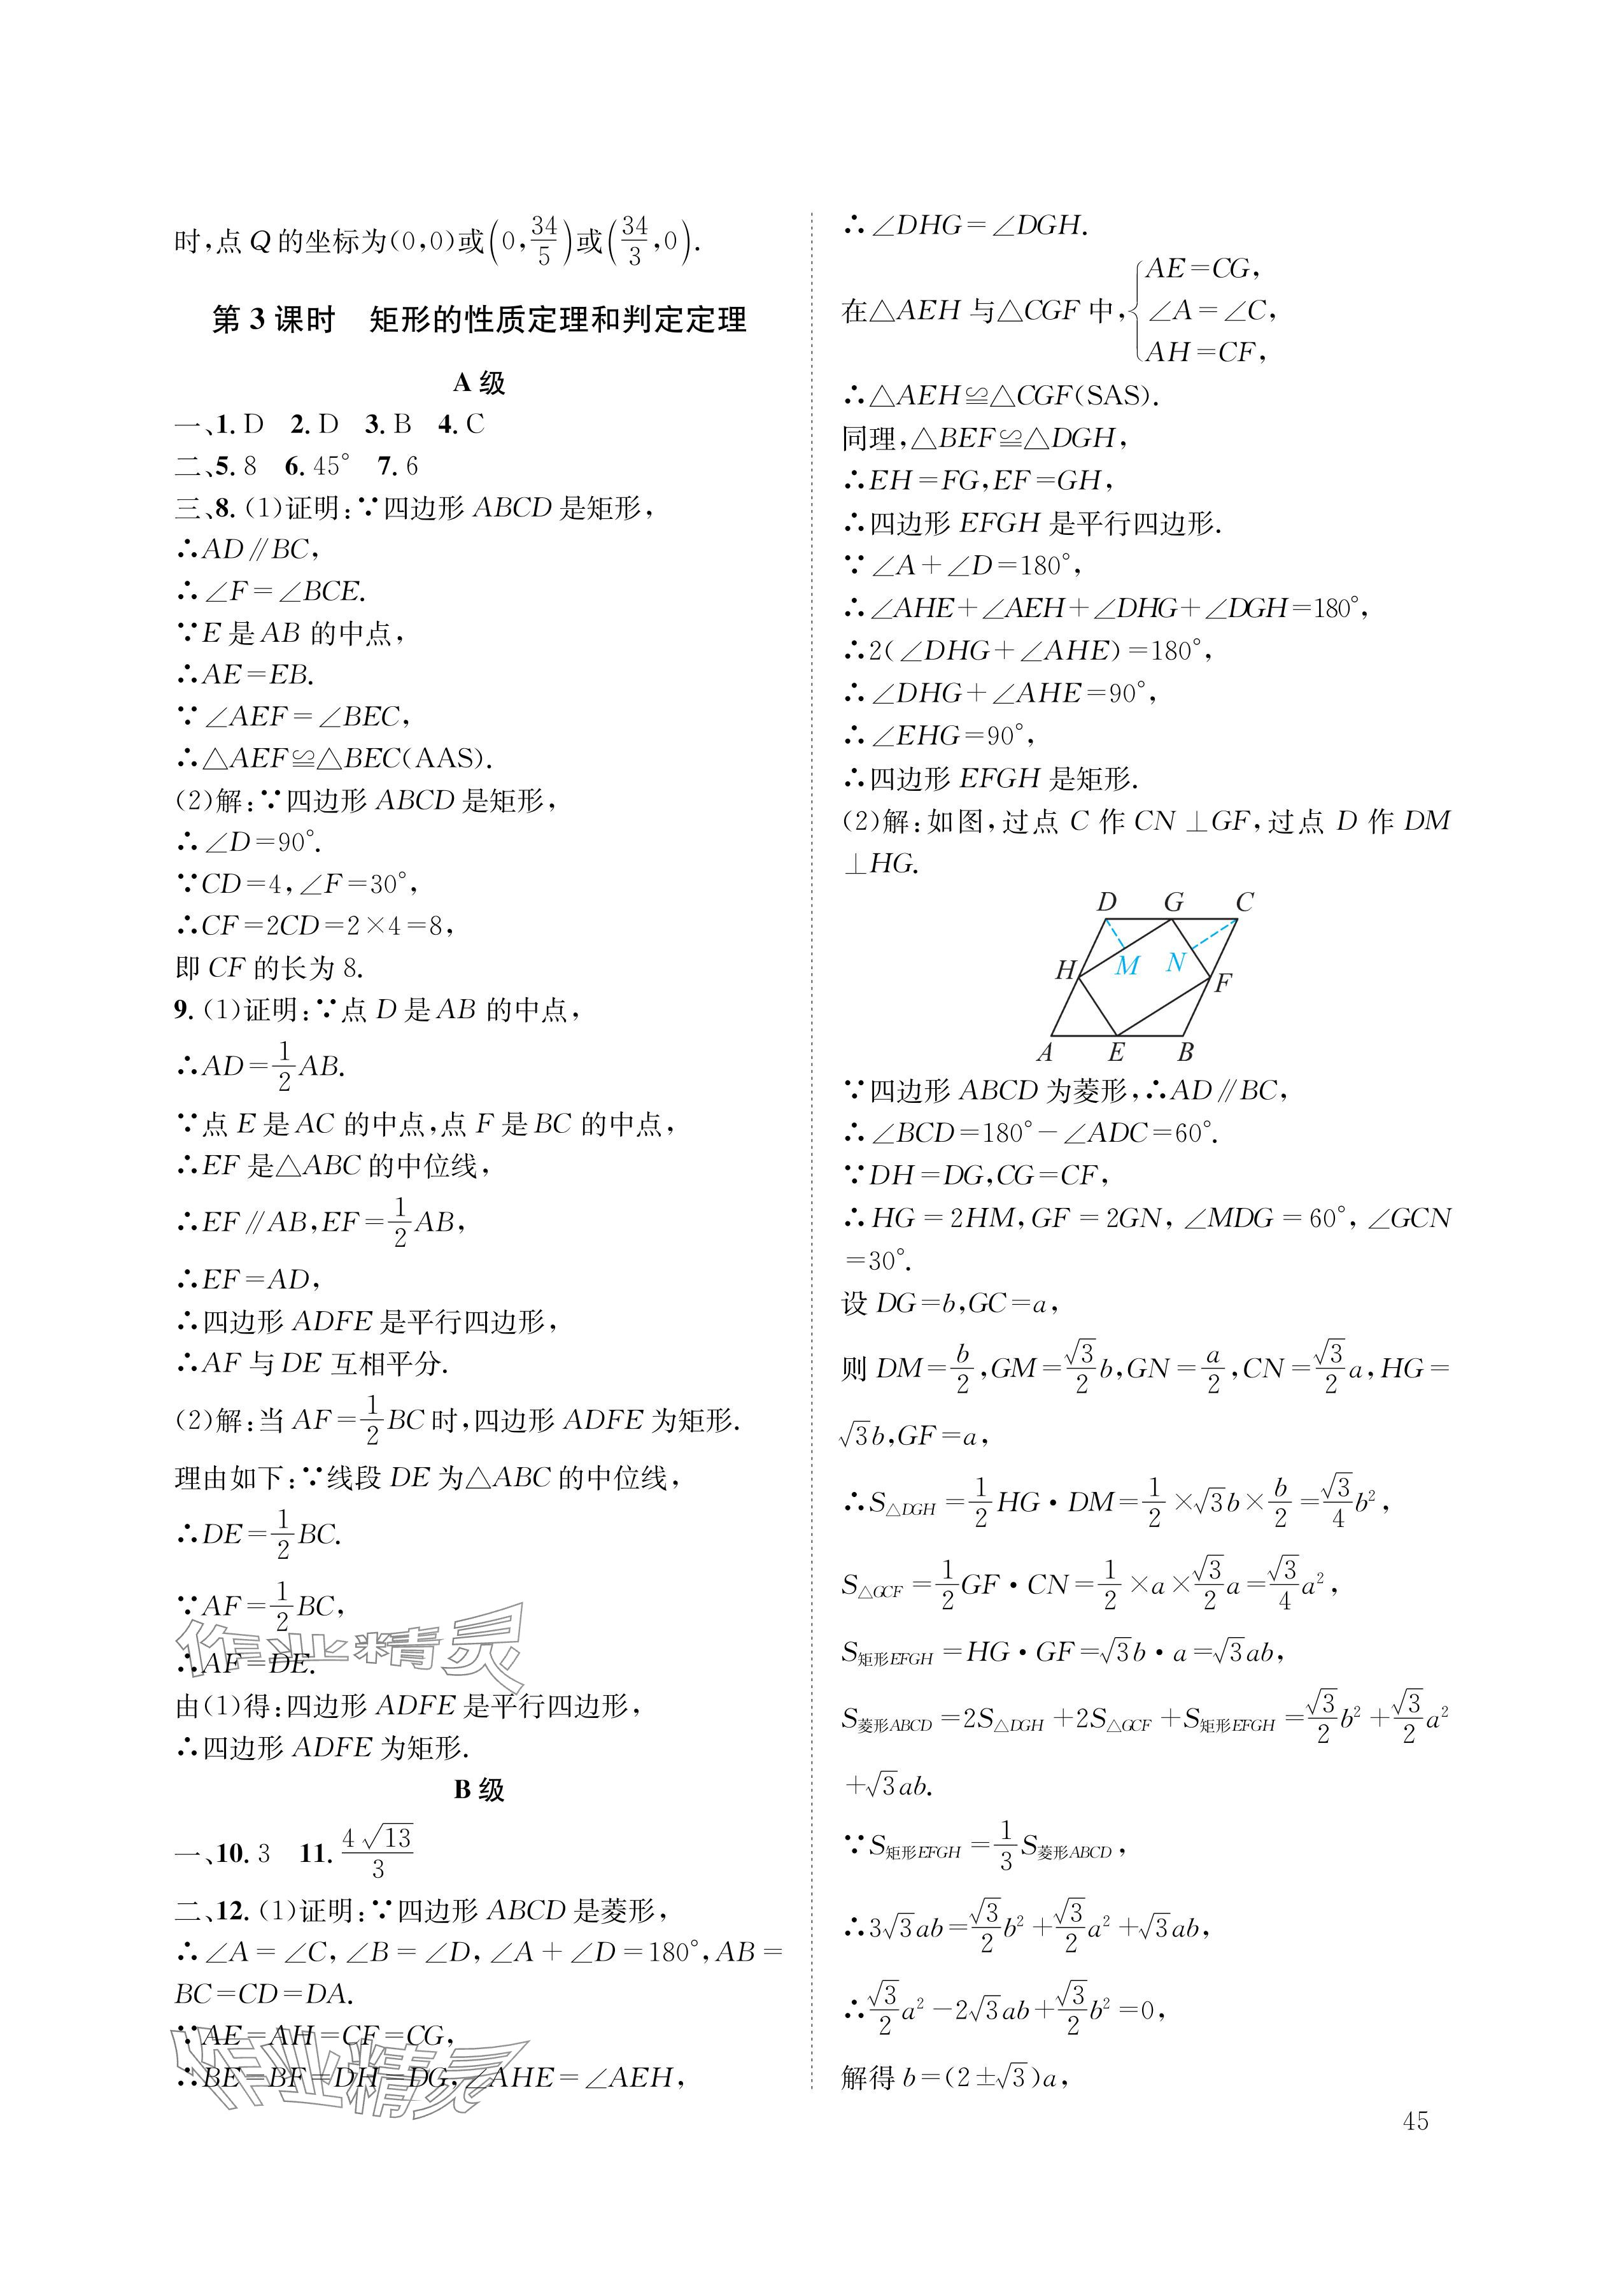 时,点 Q 的坐标为(0,0)或(0,34/5)或(34/3,0).
第 3 课时 矩形的性质定理和判定定理
A 级
一、1. D 2. D 3. B 4. C
二、5. 8 6. 45° 7. 6
三、8. (1)证明:∵四边形 ABCD 是矩形,
∴AD∥BC,
∴∠F=∠BCE.
∵E 是 AB 的中点,
∴AE=EB.
∵∠AEF=∠BEC,
∴△AEF≌△BEC(AAS).
(2)解:∵四边形 ABCD 是矩形,
∴∠D=90°.
∵CD=4,∠F=30°,
∴CF=2CD=2×4=8,
即 CF 的长为 8.
9. (1)证明:∵点 D 是 AB 的中点,
∴AD=1/2AB.
∵点 E 是 AC 的中点,点 F 是 BC 的中点,
∴EF 是△ABC 的中位线,
∴EF∥AB,EF=1/2AB,
∴EF=AD,
∴四边形 ADFE 是平行四边形,
∴AF 与 DE 互相平分.
(2)解:当 AF=1/2BC 时,四边形 ADFE 为矩形.
理由如下:∵线段 DE 为△ABC 的中位线,
∴DE=1/2BC.
∵AF=1/2BC,
∴AF=DE.
作业精灵
由(1)得:四边形 ADFE 是平行四边形,
∴四边形 ADFE 为矩形.
B 级
一、10. 3 11. 4√13/3
二、12. (1)证明:∵四边形 ABCD 是菱形,
∴∠A=∠C,∠B=∠D,∠A+∠D=180°,AB=
BC=CD=DA.
∵AE=AH=CF=CG,
∴BE=BF=DH=DG,∠AHE=∠AEH,
作业精灵
∴∠DHG=∠DGH.
在△AEH 与△CGF 中,{AE=CG,
∠A=∠C,
AH=CF,
∴△AEH≌△CGF(SAS).
同理,△BEF≌△DGH,
∴EH=FG,EF=GH,
∴四边形 EFGH 是平行四边形.
∵∠A+∠D=180°,
∴∠AHE+∠AEH+∠DHG+∠DGH=180°,
∴2(∠DHG+∠AHE)=180°,
∴∠DHG+∠AHE=90°,
∴∠EHG=90°,
∴四边形 EFGH 是矩形.
(2)解:如图,过点 C 作 CN⊥GF,过点 D 作 DM
⊥HG.
D G C
H M N F
A E B
∵四边形 ABCD 为菱形,∴AD∥BC,
∴∠BCD=180°-∠ADC=60°.
∵DH=DG,CG=CF,
∴HG=2HM,GF=2GN,∠MDG=60°,∠GCN
=30°.
设 DG=b,GC=a,
则 DM=b/2,GM=√3/2b,GN=a/2,CN=√3/2a,HG=
√3b,GF=a,
∴S△DGH=1/2HG·DM=1/2×√3b×b/2=√3/4b²,
S△GCF=1/2GF·CN=1/2×a×√3/2a=√3/4a²,
S矩形EFGH=HG·GF=√3b·a=√3ab,
S菱形ABCD=2S△DGH+2S△GCF+S矩形EFGH=√3/2b²+√3/2a²
+√3ab.
∵S矩形EFGH=1/3S菱形ABCD,
∴3√3ab=√3/2b²+√3/2a²+√3ab,
∴√3/2a²-2√3ab+√3/2b²=0,
解得 b=(2±√3)a,
45